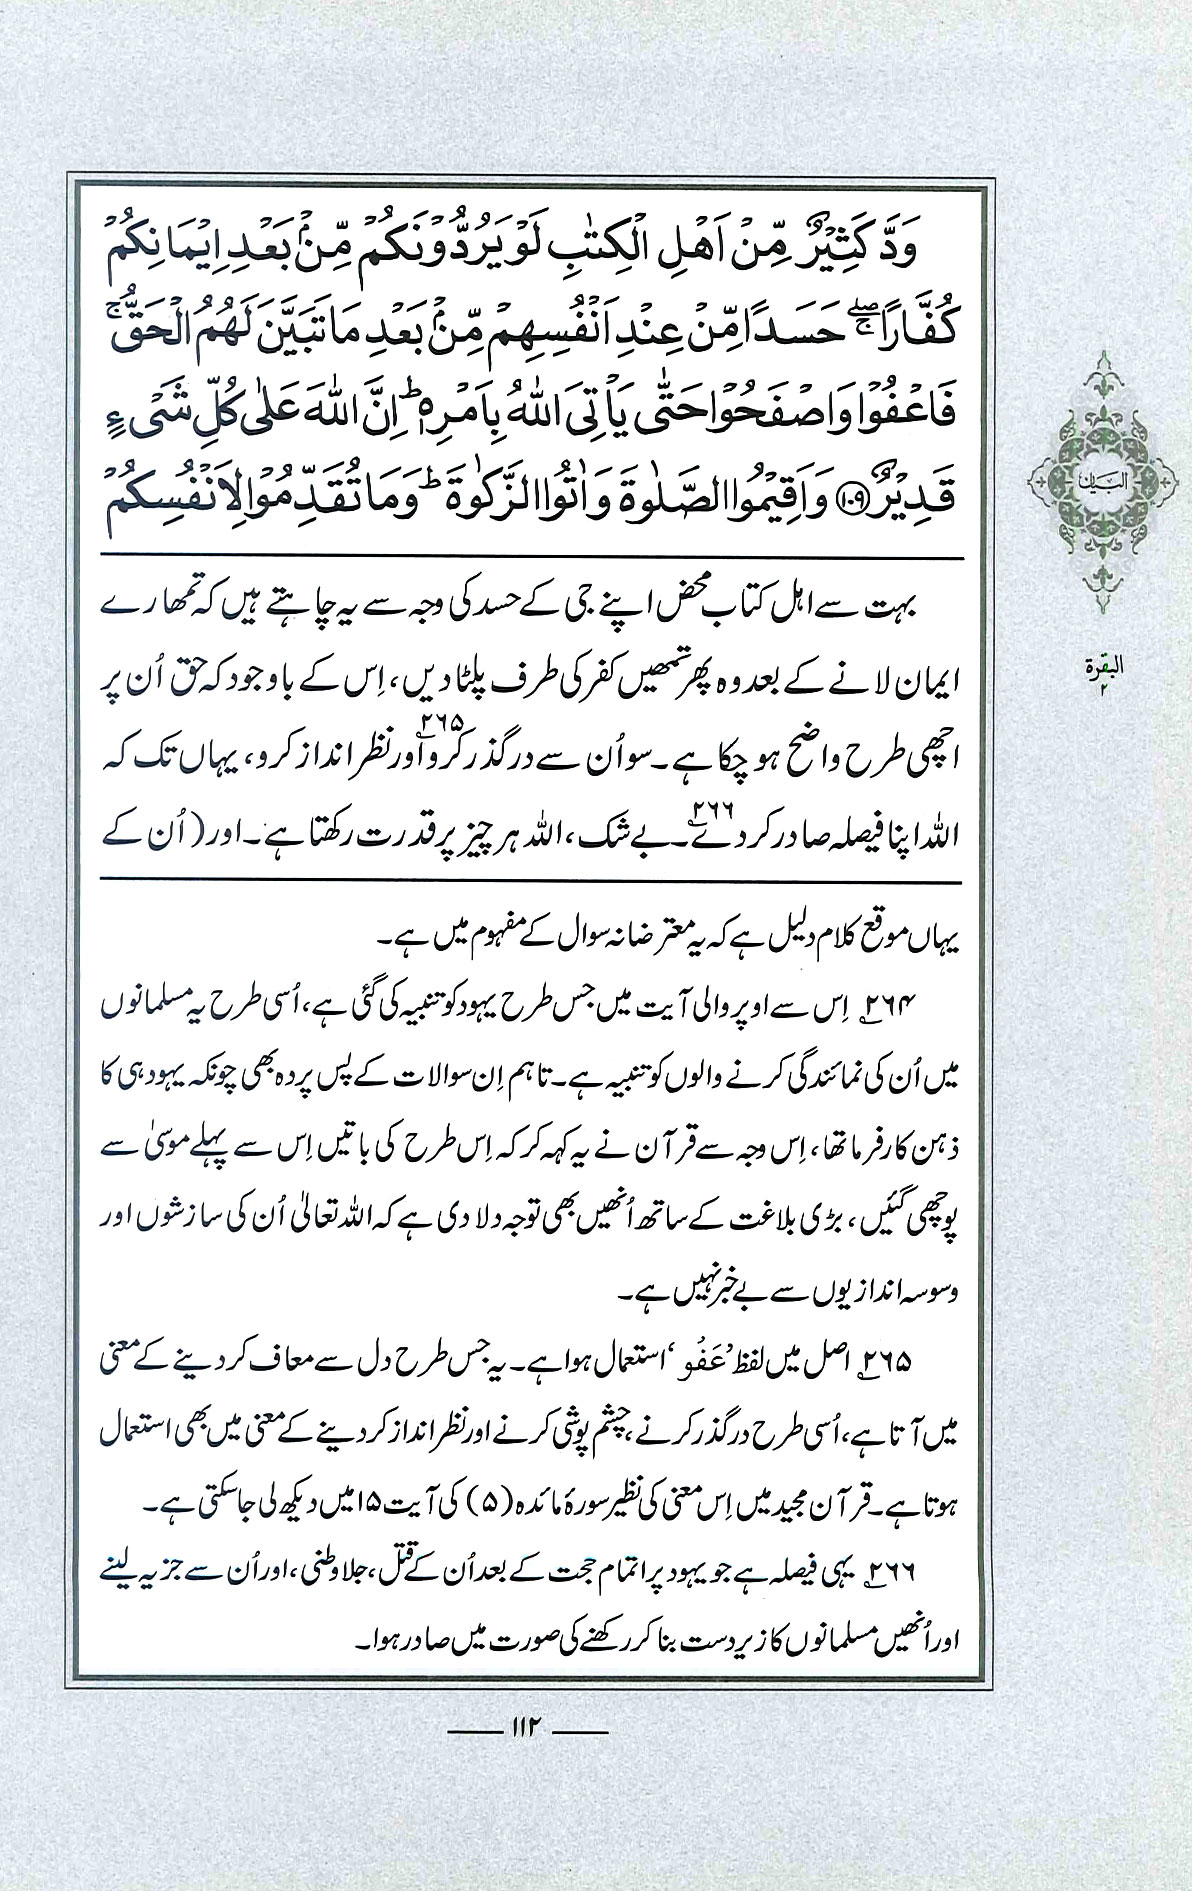 وَدَّ كَثِيْرٌ مِّنْ اَهْلِ الْكِتٰبِ لَوْ يَرُدُّوْنَكُمْ مِّنْۢ بَعْدِ اِيْمَانِكُمْ
كُفَّارًا ۖۚ حَسَدًا مِّنْ عِنْدِ اَنْفُسِهِمْ مِّنْۢ بَعْدِ مَا تَبَيَّنَ لَهُمُ الْحَقُّ ۚ
فَاعْفُوْا وَاصْفَحُوْا حَتّٰى يَاْتِىَ اللّٰهُ بِاَمْرِهٖ ؕ اِنَّ اللّٰهَ عَلٰى كُلِّ شَىْءٍ
قَدِيْرٌ ﴿۱۰۹﴾ وَاَقِيْمُوا الصَّلٰوةَ وَاٰتُوا الزَّكٰوةَ ؕ وَمَا تُقَدِّمُوْا لِاَنْفُسِكُمْ
بہت سے اہل کتاب محض اپنے جی کے حسد کی وجہ سے یہ چاہتے ہیں کہ تمھارے
ایمان لانے کے بعد وہ پھر تمھیں کفر کی طرف پلٹا دیں، اِس کے باوجود کہ حق اُن پر
اچھی طرح واضح ہو چکا ہے۔ سو اُن سے درگذر کرو۲۶۵ اور نظر انداز کرو، یہاں تک کہ
اللہ اپنا فیصلہ صادر کر دے۔۲۶۶ بے شک، اللہ ہر چیز پر قدرت رکھتا ہے۔ اور (اُن کے
یہاں موقع کلام دلیل ہے کہ یہ معترضانہ سوال کے مفہوم میں ہے۔
۲۶۴؂ اِس سے اوپر والی آیت میں جس طرح یہود کو تنبیہ کی گئی ہے، اُسی طرح یہ مسلمانوں
میں اُن کی نمائندگی کرنے والوں کو تنبیہ ہے۔ تاہم اِن سوالات کے پس پردہ بھی چونکہ یہود ہی کا
ذہن کارفرما تھا، اِس وجہ سے قرآن نے یہ کہہ کر کہ اِس طرح کی باتیں اِس سے پہلے موسیٰ سے
پوچھی گئیں، بڑی بلاغت کے ساتھ اُنھیں بھی توجہ دلا دی ہے کہ اللہ تعالیٰ اُن کی سازشوں اور
وسوسہ اندازیوں سے بے خبر نہیں ہے۔
۲۶۵؂ اصل میں لفظ ’عَفْو‘ استعمال ہوا ہے۔ یہ جس طرح دل سے معاف کر دینے کے معنی
میں آتا ہے، اُسی طرح درگذر کرنے، چشم پوشی کرنے اور نظر انداز کر دینے کے معنی میں بھی استعمال
ہوتا ہے۔ قرآن مجید میں اِس معنی کی نظیر سورۂ مائدہ (۵) کی آیت ۱۵ میں دیکھ لی جا سکتی ہے۔
۲۶۶؂ یہی فیصلہ ہے جو یہود پر اتمام حجت کے بعد اُن کے قتل، جلاوطنی، اور اُن سے جزیہ لینے
اور اُنھیں مسلمانوں کا زیردست بنا کر رکھنے کی صورت میں صادر ہوا۔
البیان
البقرة
۲
۱۱۲